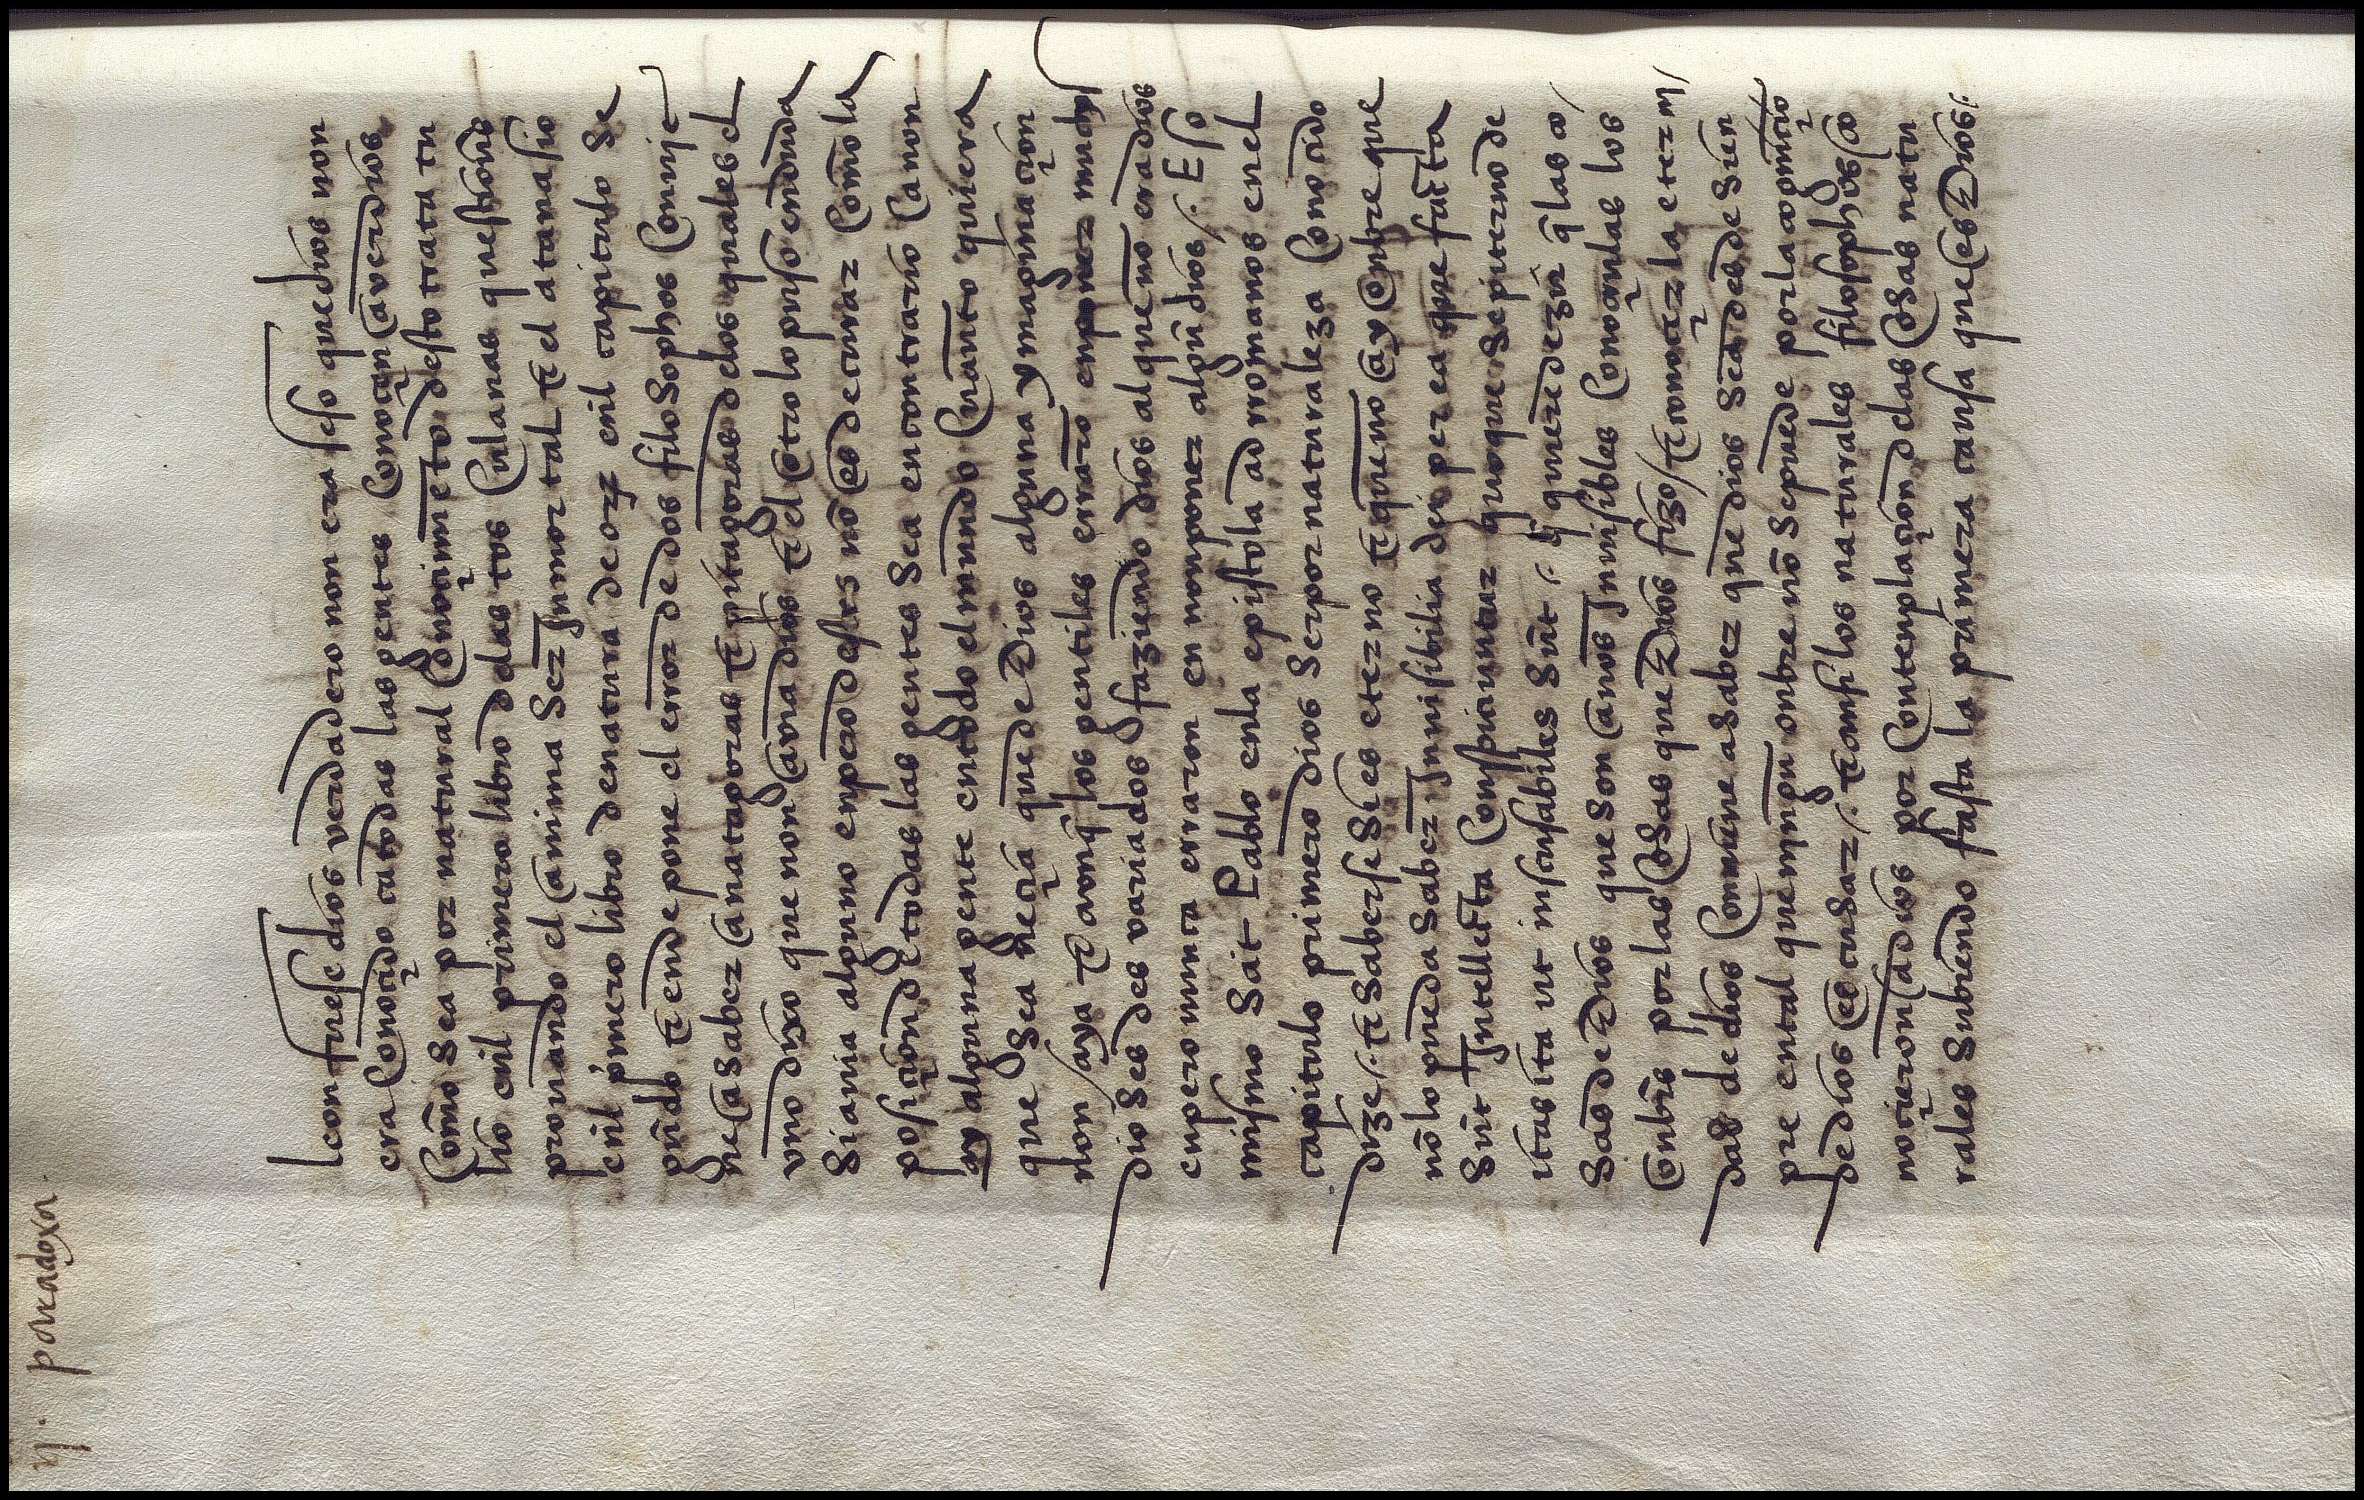 ij. paradoxa.
lcon fuese dios verdadero non era seso que dios non
era conoçido ca todas las gentes conoçen ca ver dios
como sea por natural conoçimiẽto desto trata tu
lio enl primero libro delas tus culanas questiones
prouando el anima ser jnmortal et el atanasio
enl pⁱmero libro de natura deorꝫ enl capitulo se
gũdo et ende pone el error de dos filosophos conuie
ne a saber anatagoras et pitagoras delos quales el
vno dixo que non auia dios et el otro lo puso en dubda
si auia alguno enpero destos nõ es de curar como la
posiçion de todas las gentes sea en contrario ca non
ay alguna gente en todo el mundo quanto quiera
que sea neçia que de dios alguna ymaginaçion
non aya et aonq̃ los gentiles erraro en poner muchos
dioses des variados faziendo dios al que no era dios
enpero nunca erraron en non poner algũ dios /. Eso
mismo Sait Pablo enla epistola ad rromanos enel
capitulo primero dios ser por naturaleza conoçido
dize /. et saber se si es eterno et que no ay onbre que
nõ lo pueda saber jnuisibilia dei per ea que facta
sũt jntellecta conspiciuntur quoque sepiterno de
itas ita ut inscusabiles sũt /. q̃ quiere dezir q̃ las co
sas de dios que son anos jnuisibles conoçenlas los
onbrs por las cosas que dios fizo / et conoçer la eterni
dad de dios conuiene a saber que dios sea desde sien
pre en tal que ningũ onbre nõ se puede por la coniio
de dios escusar /. et consi los naturales filosophos co
noçieron a dios por contenplaçion delas cosas natu
rales subiendo fasta la primera causa que es dios.